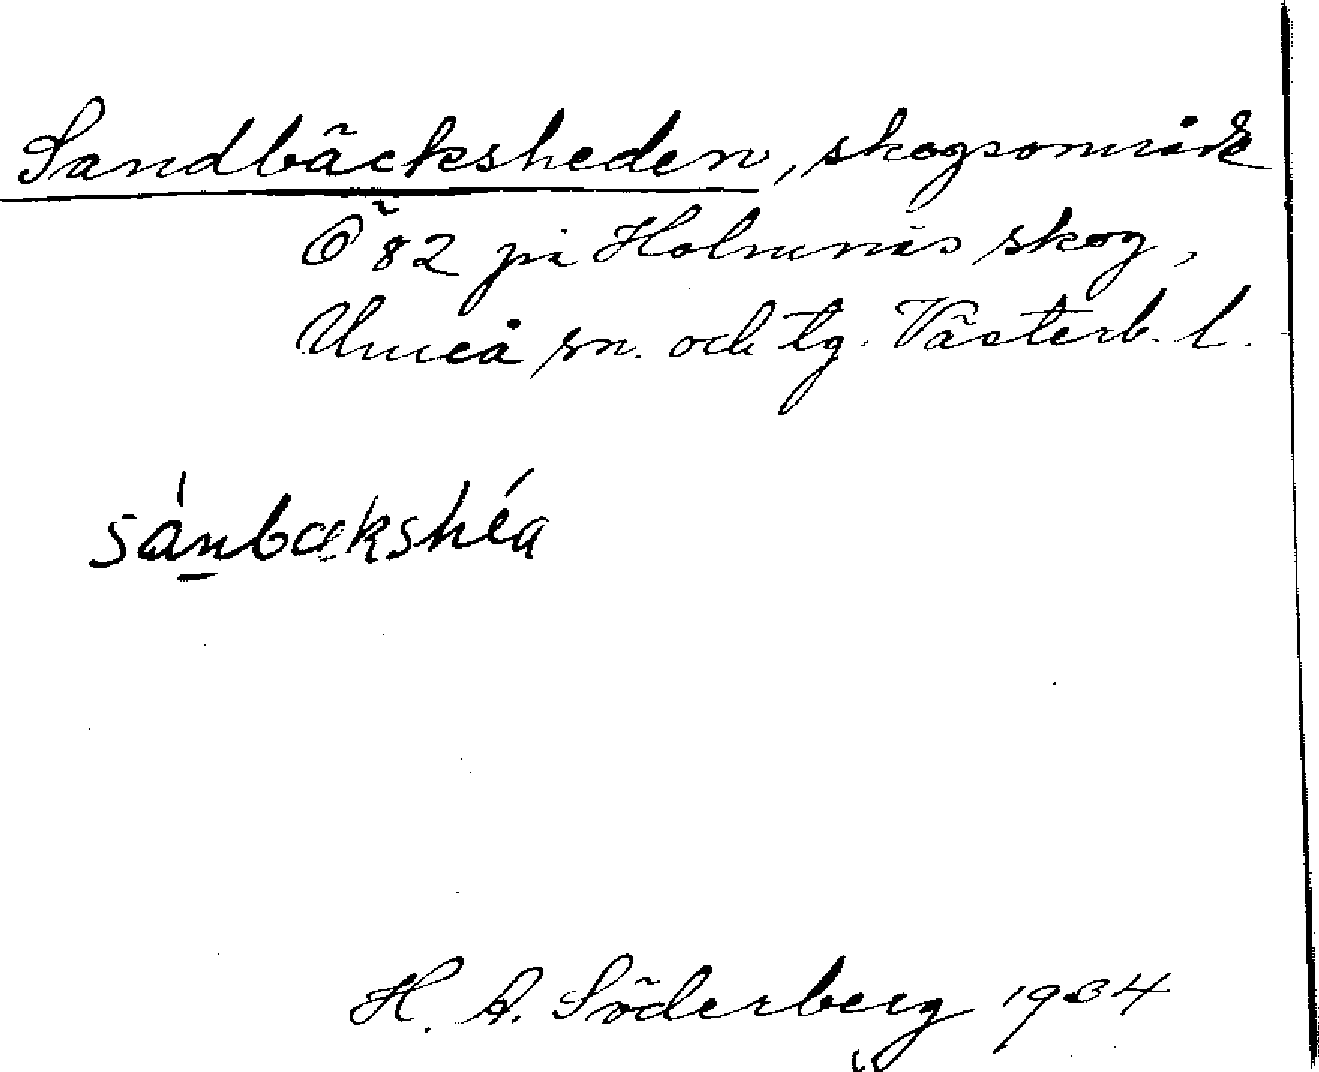 Sandbäcksheden, skogsområde
Ö 82 på Holmnäs skog,
Umeå sn. och tg. Västerb. l.
sánbækshéa
H. A. Söderberg 1934